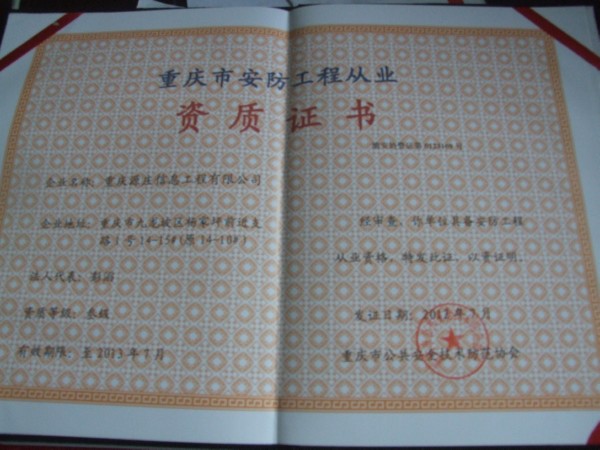 重庆市安防工程从业
资质证书
企业名称：重庆源庄信息工程有限公司
企业地址：重庆市九龙坡区杨家坪前进支
路1号14-15#(原14-10#)
法人代表：彭
资质等级：叁级
有效期限：至2013年7月
经审查，你单位具备安防工程
从业资格，特发此证，以资证明。
发证日期：2012年7月
重庆市公共安全技术防范协会